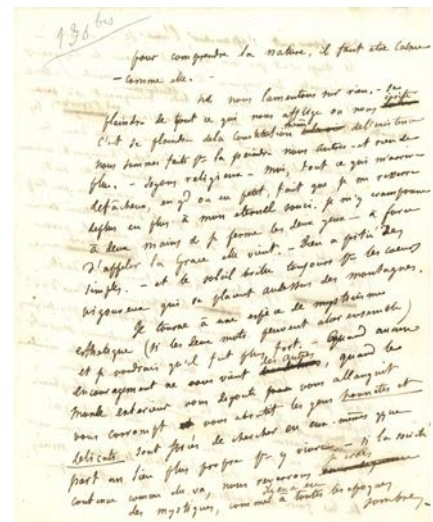 130 bis
pour comprendre la nature, il faut être calme
- comme elle. -
ne nous lamentons sur rien. - se
plaindre de tout ce qui nous afflige ou nous irrite
c'est se plaindre de la constitution même de l'existence
nous sommes faits pr la peindre nous autres - et rien de
plus. - Soyons religieux - moi, tout ce qui m'arrive de
fâcheux, en gd ou en petit, fait que je me resserre
de plus en plus à mon éternel souci. je m'y cramponne
à deux mains & je ferme les deux yeux - à force
d'appeler la Grâce elle vient. - Dieu a pitié des
simples. - et le soleil brille toujours pr les coeurs
vigoureux qui se placent au-dessus des montagnes.
Je tourne à une espèce de mysticisme
esthétique (si les deux mots peuvent aller ensemble)
et je voudrais qu'il fût plus fort. - Quand aucun
encouragement ne vous vient des autres, quand le
monde extérieur vous dégoûte vous alanguit
vous corrompt & vous abrutit les gens honnêtes et
délicats sont forcés de chercher en eux-mêmes quelque
part un lieu plus propre pr y vivre - si la société
continue comme elle va, nous reverrons je crois
des mystiques, comme il y en a eu à toutes les époques
sombres.